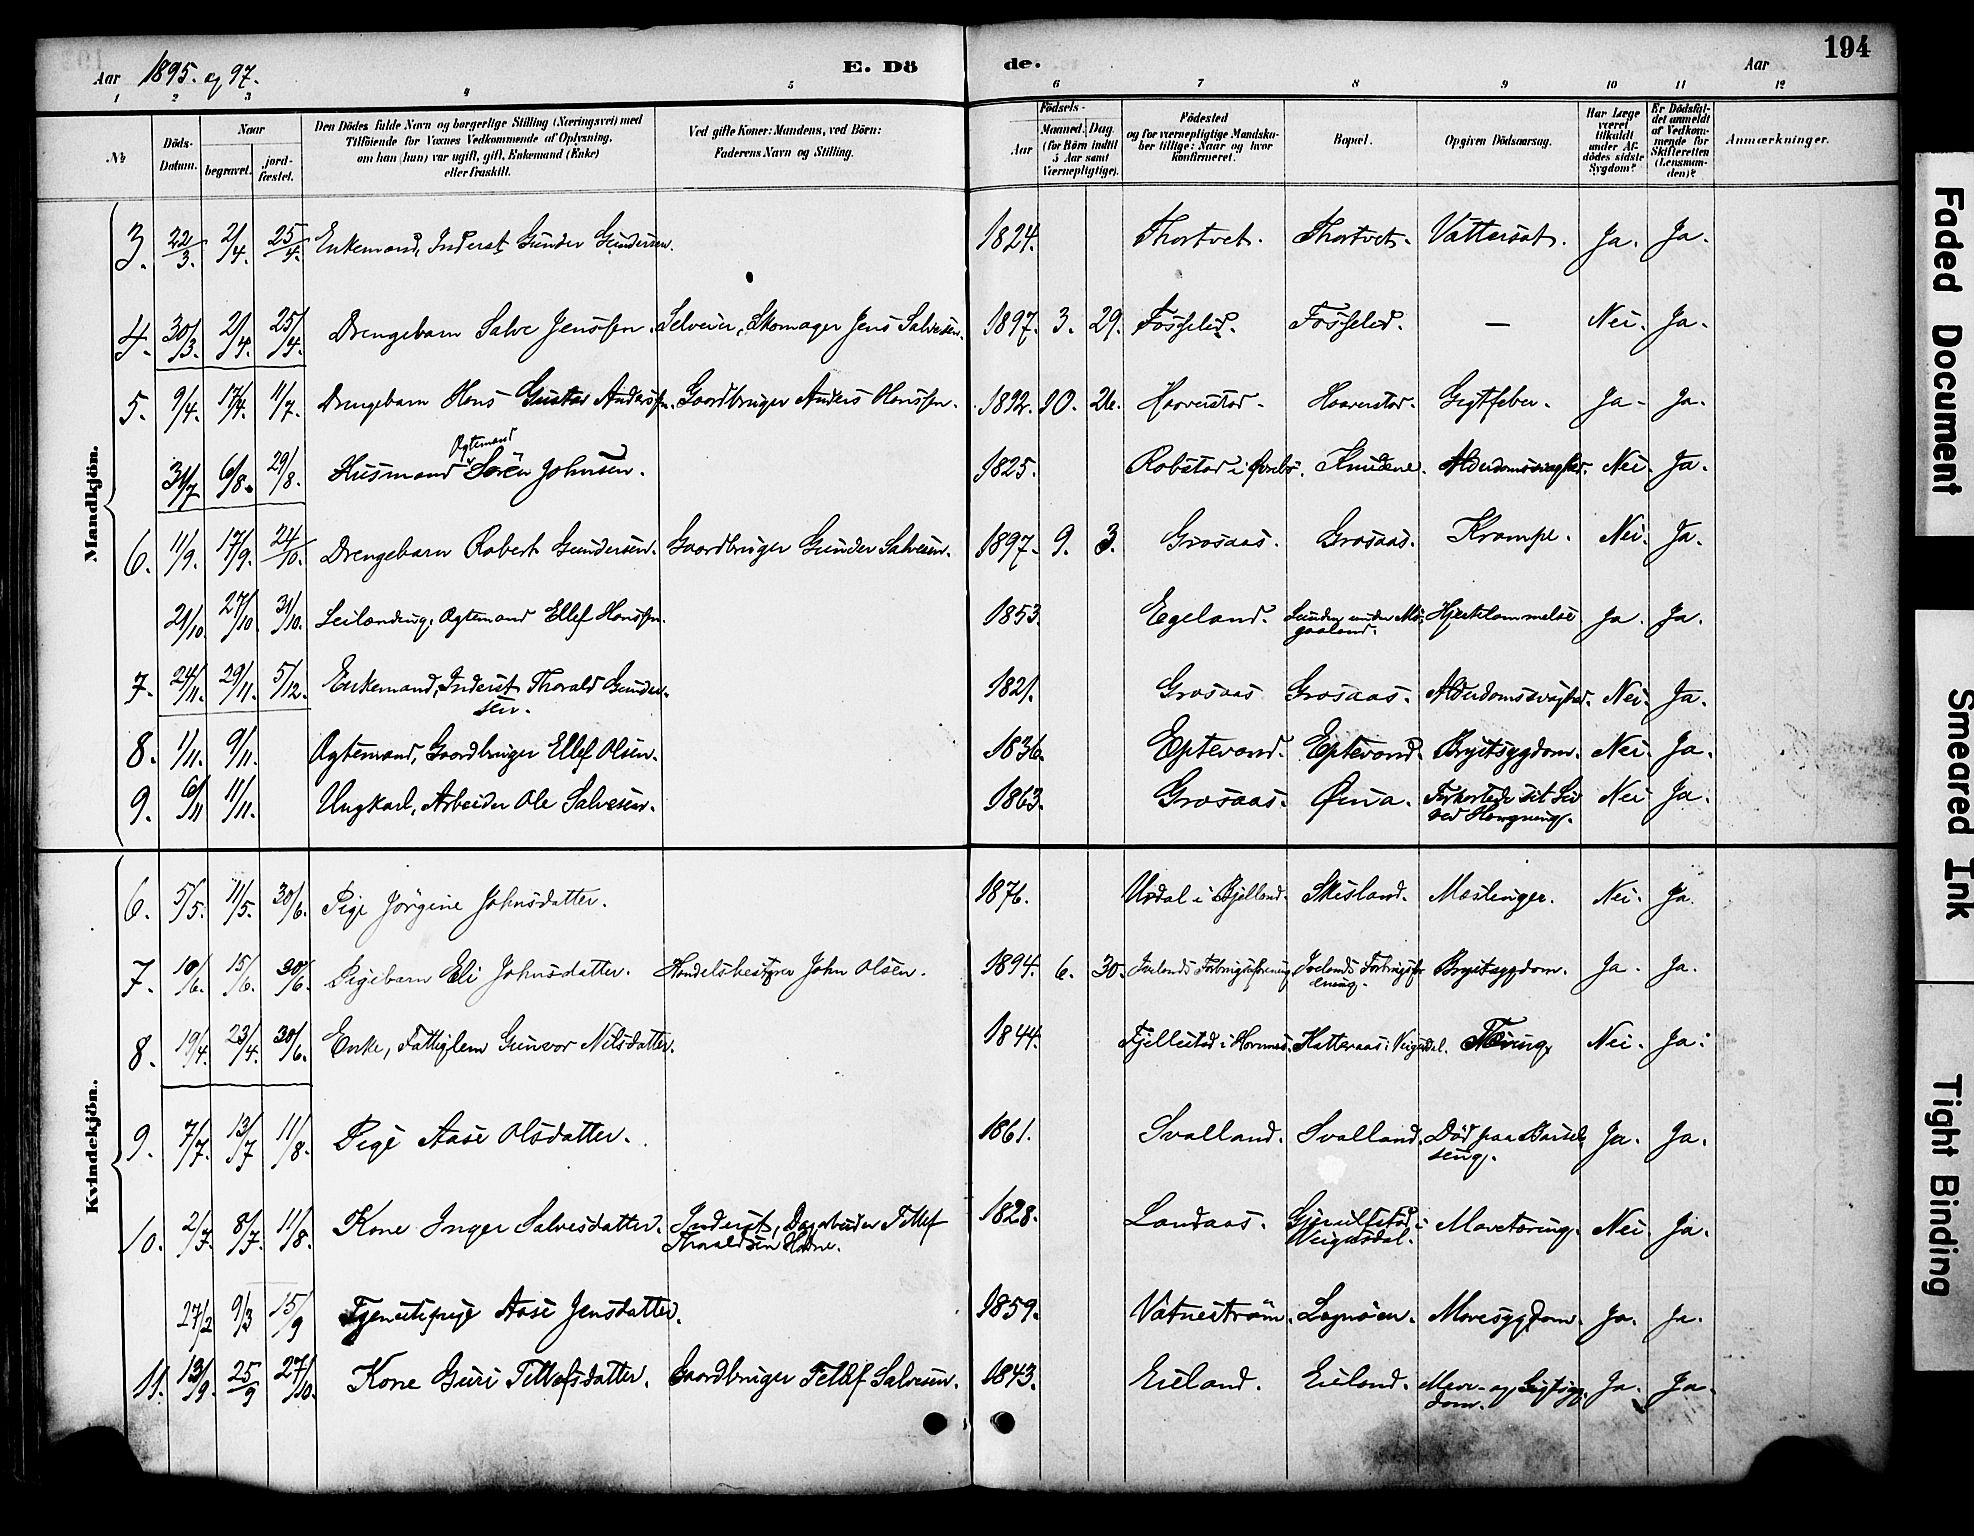 Aar 1895. og 97.
E. Dö de.
Aar 194
1 2 3 4 5 6 7 8 9 10 11 12
No
Döds-Datum.
Naar begravet. jordfæstet.
Den Dödes fulde Navn og borgerlige Stilling (Næringsvei) med Tilföiende for Voxnes Vedkommende af Oplysning, om han (hun) var ugift, gift, Enkemand (Enke) eller fraskilt.
Ved gifte Koner: Mandens, ved Börn: Faderens Navn og Stilling.
Födsels- Aar Maaned. Dag. (for Börn indtil 5 Aar samt Værnepligtige).
Födested og for værnepligtige Mandskaber tillige: Naar og hvor konfirmeret.
Bopæl.
Opgiven Dödsaarsag.
Har Læge været tilkaldt under Afdödes sidste Sygdom?
Er Dödsfaldet anmeldt af Vedkommende for Skifteretten (Lensmanden)?
Anmærkninger.
Mandkjön.
3. 22/3. 2/4. 25/4. Enkemand, Inderst Gunder Gundersen. 1824. Thortvet. Thortvet. Vattersot. Ja. Ja.
4. 30/3. 2/4. 25/4. Drengebarn Salve Jenssen. Selveier, Skomager Jens Salvesen. 1897. 3. 29. Fosselid. Fosselid. — Nei. Ja.
5. 9/4. 17/4. 11/7. Drengebarn Hans Gustav Anderssen. Gaardbruger Anders Hanssen. 1892. 10. 26. Haaverstad. Haaverstad. Gigtfeber. Ja. Ja.
31/7 6/8. 29/8. Husmand Ægtemand Sören Johnsen. 1825. Robstad i Øvrebø. Knudene. Alderdomssvaghed. Nei. Ja.
6. 11/9. 17/9. 24/10. Drengebarn Robert Gundersen. Gaardbruger Gunder Salvesen. 1897. 9. 3. Grosaas. Grosaas. Krampe. Nei. Ja.
21/10 27/10. 31/10. Leilænding, Ægtemand Ellef Hanssen. 1853. Egeland. under Mygaaland. Hjertelammelse Ja. Ja.
7. 24/11. 29/11. 5/12. Enkemand, Inderst Thorald Gundersen. 1821. Grosaas Grosaas. Alderdomssvaghed. Nei. Ja.
8. 1/11. 9/11. Ægtemand, Gaardbruger Ellef Olsen. 1836. Eptevand. Eptevand. Brystsygdom. Nei. Ja.
9. 6/11 11/11. Ungkarl, Arbeider Ole Salvesen. 1863. Grosaas. Øina. Forkortede sit Liv ved Hængning. Nei Ja.
Kvindekjön.
6. 5/5. 11/5. 30/6. Pige Jörgine Johnsdatter. 1876. Usdal i Bjelland. Skisland. Mæslinger. Nei. Ja.
7. 10/6. 15/6. 30/6. Pigebarn Eli Johnsdatter. Handelsbestyrer John Olsen. 1894. 6. 30. Ivelands Forbrugsforening Ivelands Forbrugsforening. Brystsygdom. Ja. Ja.
8. 19/4. 23/4. 30/6. Enke, Fattiglem Gunvor Nilsdatter. 1844. Fjellestad i Hornnes. Hatteraas i Veigusdal. Tæring. Nei. Ja.
9. 7/7. 13/7 11/8. Pige Aase Olsdatter. 1861. Svalland. Svalland. Död paa Barselseng. Ja. Ja.
10. 2/7. 8/7. 11/8. Kone Inger Salvesdatter. Inderst, Dagarbeider Tellef Thoraldsen. 1828. Landaas. Gjeruldstad i Veigusdal. Mavetæring. Nei Ja.
27/2 9/3 15/9 Tjenestepige Aase Jensdatter. 1859. Vatneström. Mavesygdom. Ja. Ja.
11. 13/9. 25/9 27/10. Kone Guri Tellefsdatter. Gaardbruger Tellef Salvesen. 1843. Eieland. Eieland. Mave- og Gigtsygdom. Ja. Ja.
Faded Document
Smeared Ink
Tight Binding